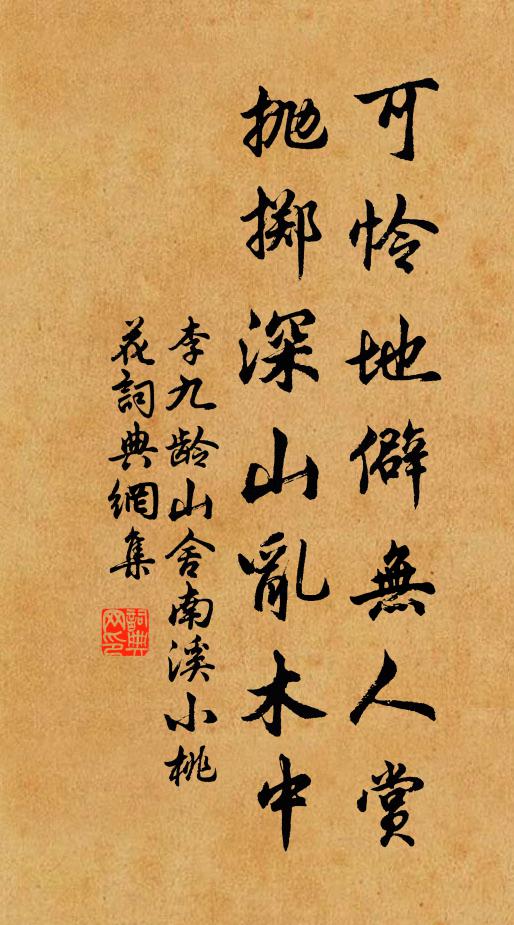 可怜地僻無人賞
抛掷深山亂木中
李九龄山舍南溪小桃
花詞典網集
詞典
网印